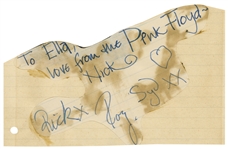 To Ella
love from the Pink Floyd
Nick
Rick x Rog Syd xx